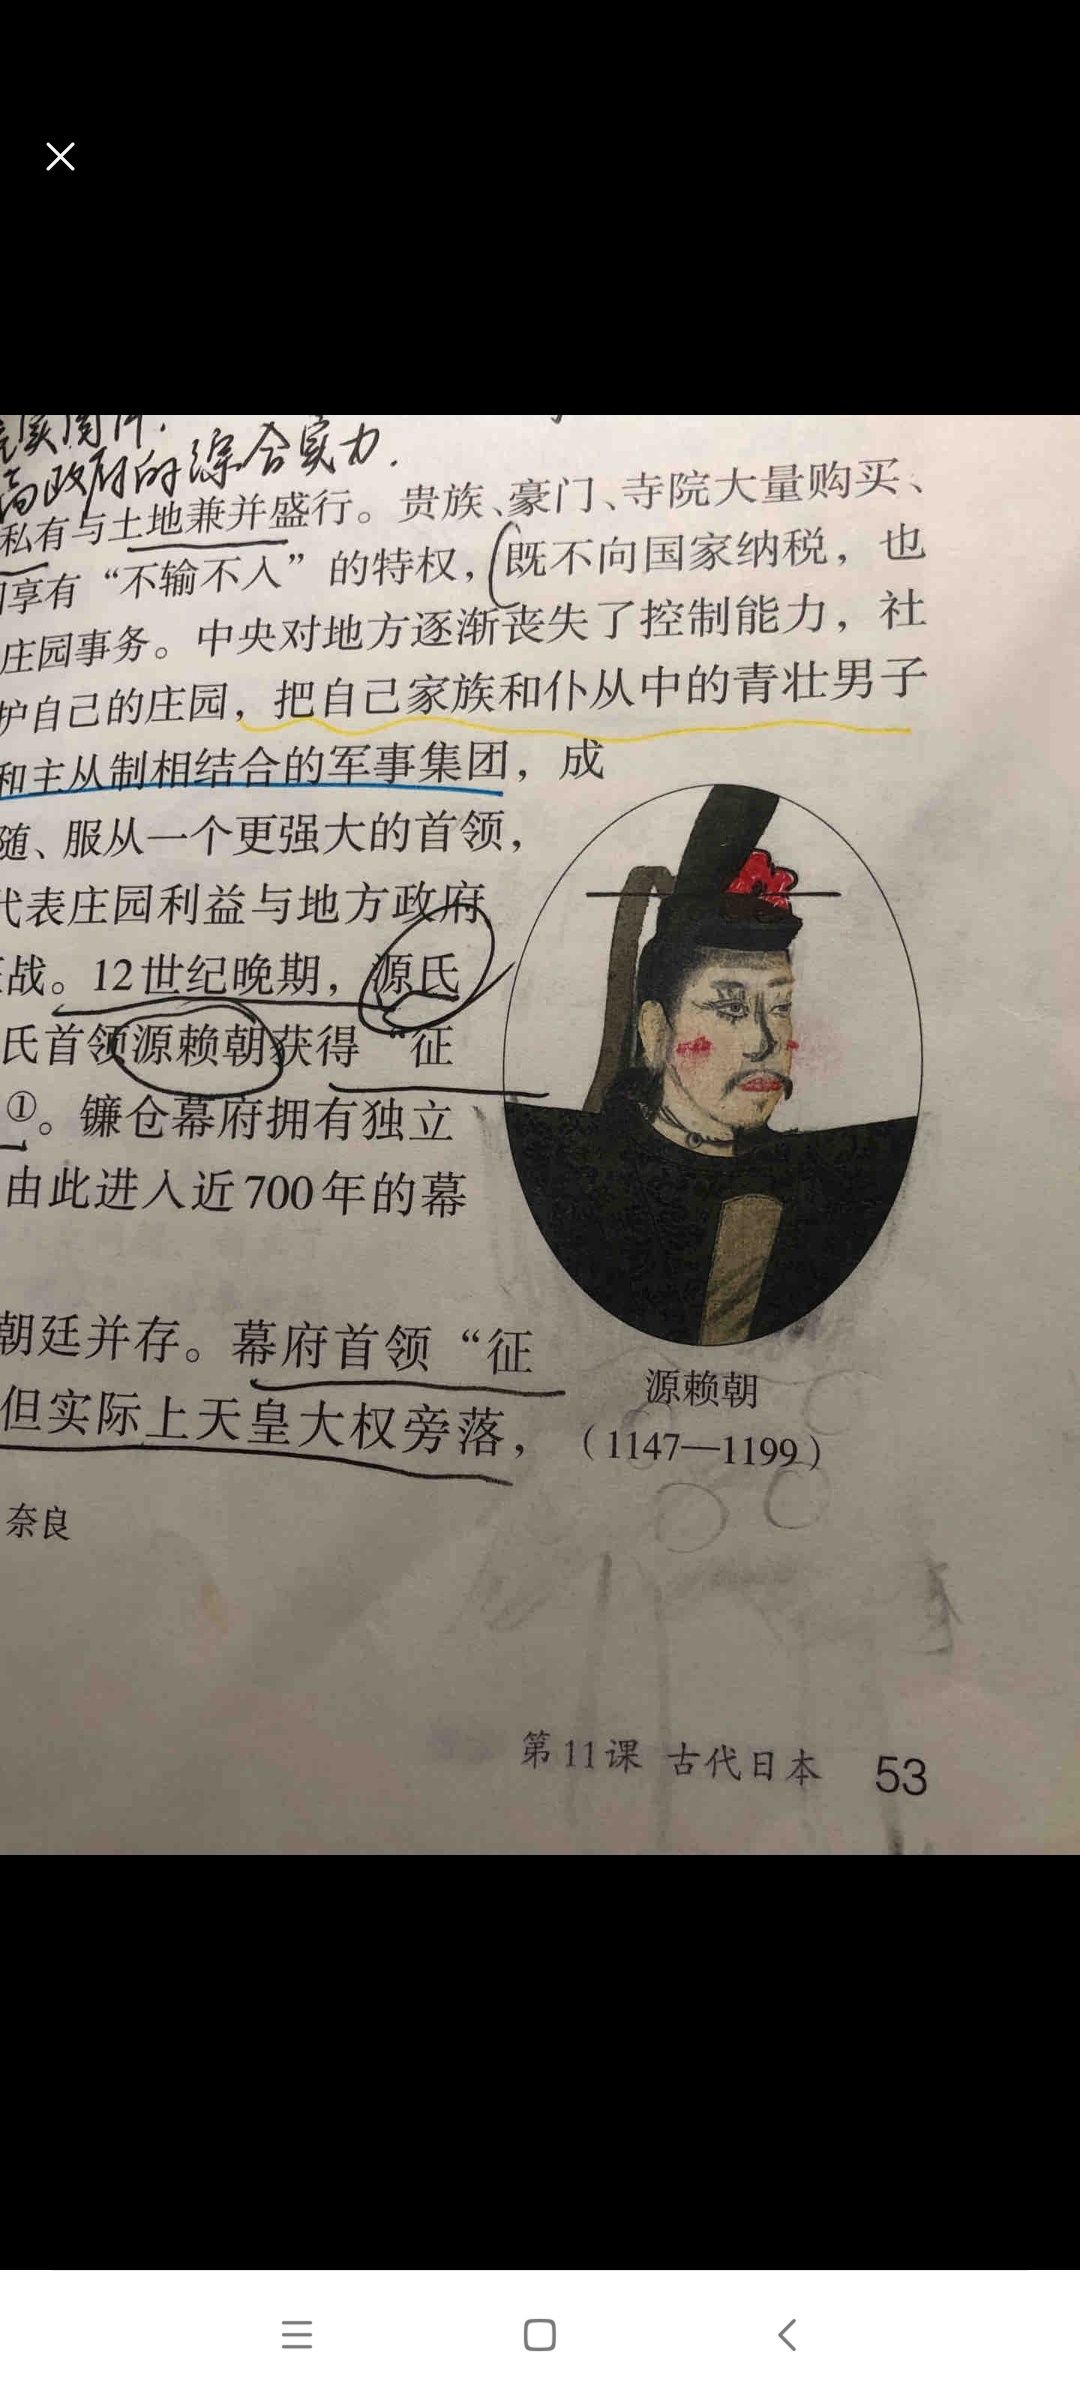 高政府的综合实力.
私有与土地兼并盛行。贵族、豪门、寺院大量购买、
享有“不输不入”的特权，既不向国家纳税，也
庄园事务。中央对地方逐渐丧失了控制能力，社
护自己的庄园，把自己家族和仆从中的青壮男子
和主从制相结合的军事集团，成
随、服从一个更强大的首领，
代表庄园利益与地方政府
战。12世纪晚期，源氏
氏首领源赖朝获得“征
①。镰仓幕府拥有独立
由此进入近700年的幕
朝廷并存。幕府首领“征
但实际上天皇大权旁落，
源赖朝
（1147—1199）
奈良
第11课 古代日本 53